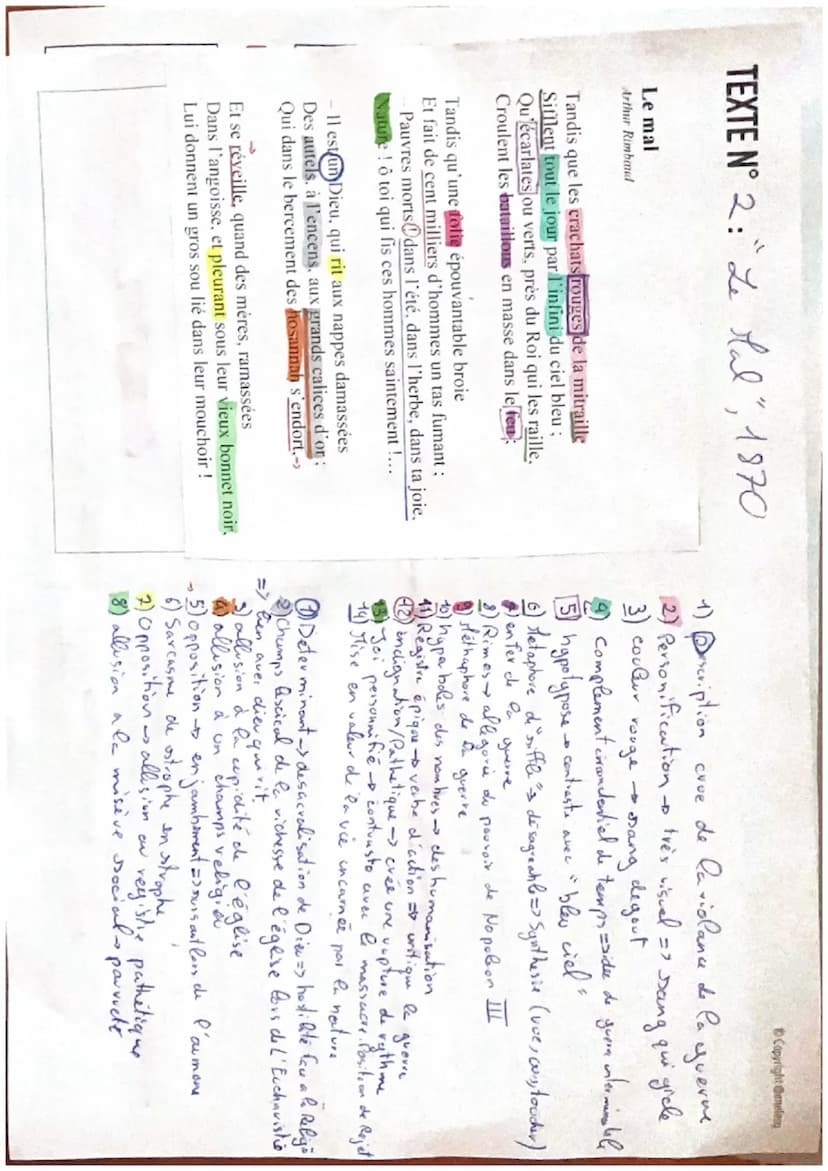 © Copyright Oneclass
TEXTE N° 2 : "Le Mal", 1870
Le mal
Arthur Rimbaud
Tandis que les crachats rouges de la mitraille
Sifflent tout le jour par l'infini du ciel bleu ;
Qu'écarlates ou verts, près du Roi qui les raille,
Croulent les bataillons en masse dans le feu ;
Tandis qu'une folie épouvantable broie
Et fait de cent milliers d'hommes un tas fumant ;
- Pauvres morts ! dans l'été, dans l'herbe, dans ta joie,
Nature ! ô toi qui fis ces hommes saintement !…
- Il est un Dieu, qui rit aux nappes damassées
Des autels, à l'encens, aux grands calices d'or ;
Qui dans le bercement des hosannah s'endort, →
Et se réveille, quand des mères, ramassées
Dans l'angoisse, et pleurant sous leur vieux bonnet noir,
Lui donnent un gros sou lié dans leur mouchoir !
1) Description crue de la violence de la guerre
2) Personification → très visuel => sang qui gicle
3) couleur rouge → sang degout
4) complement circonstentiel de temps => idée de guerre interminable
5) hypotypose → contraste avec "bleu ciel"
6) Métaphore d "siffle" → désagréable => Synthesie (vue, ouïe, toucher)
7) enfer de la guerre
8) Rimes → allégorie du pouvoir de Napoléon III
9) Méthaphore de la guerre
10) hyperboles des nombres → deshumanisation
11) Registre épique → verbe d'action => critique la guerre
12) indignation/Pathétique → crée une rupture de rythme
13) Joi personnifié → contraste avec le massacre. Position de Rejet
14) Mise en valeur de la vie incarnée par la nature
1) Determinant → desacralisation de Dieu => hostilité face a la Religio
2) Champs lexical de la richesse de l'église lors de l'Eucharistie
=> lien avec dieu qui rit
3) allusion à la cupidité de l'église
4) allusion à un champs religieu
→ 5) opposition → enjambement => sursaut lors de l'aumone
6) Sarcasme de strophe en strophe
7) Opposition → allusion au registre pathétique
8) allusion a la misère social → pauvreté